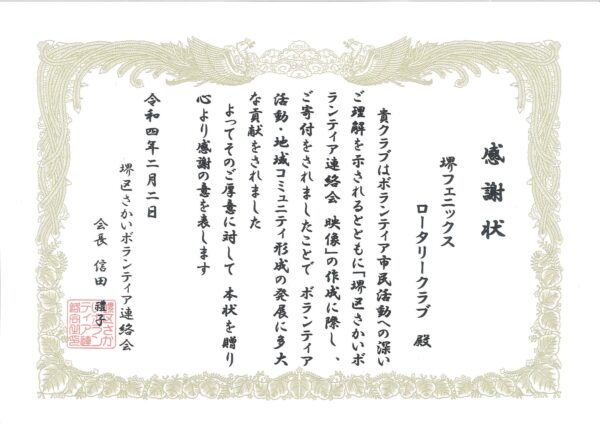 感謝状
堺フェニックス
ロータリークラブ 殿
貴クラブはボランティア市民活動への深い
ご理解を示されるとともに「堺区さかいボ
ランティア連絡会 映像」の作成に際し、
ご寄付をされましたことで ボランティア
活動・地域コミュニティ形成の発展に多大
な貢献をされました
よってそのご厚意に対して 本状を贈り
心より感謝の意を表します
令和四年二月二日
堺区さかいボランティア連絡会
会長 信田 禮子